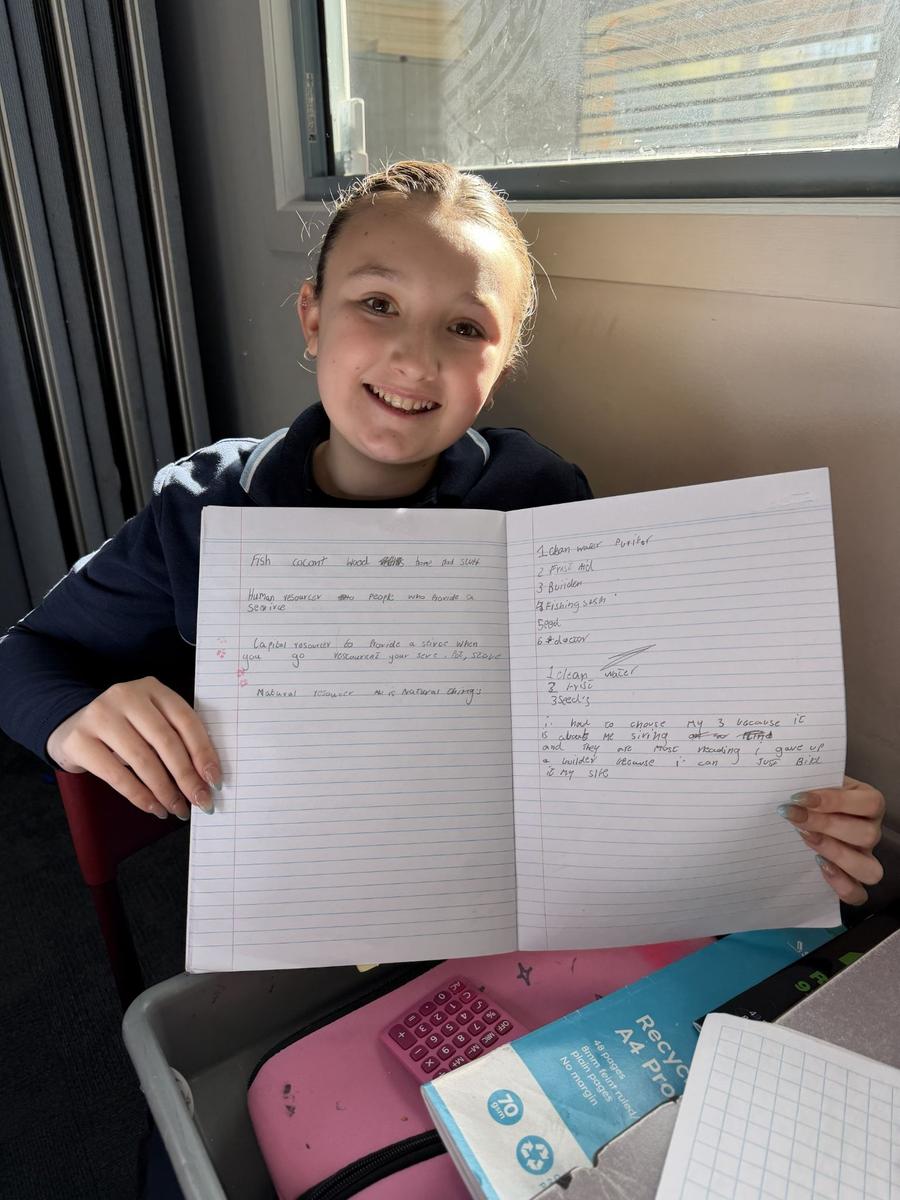 Fish cocont wood home and stuff
Human resourcer People who Provide a
service
Capital resourcer to Provide a when
you go your
Natural resourcer is Natural things
1 clean water Purifor
2 Frist Aid
3 Builder
4 Fishing
5 seed
6 doctor
1 clean water
2 Frist
3 Seed's
i had to choose My 3 because it
is about Me
and they are Most i gave up
a builder because i can JUST Bild
it My
OFF
MRC
M-
M+
%
7
8
9
4
5
6
1
2
3
0
+
Recyc
A4 Pro
48 pages
8mm feint ruled/
plain pages
No margin
70
gsm